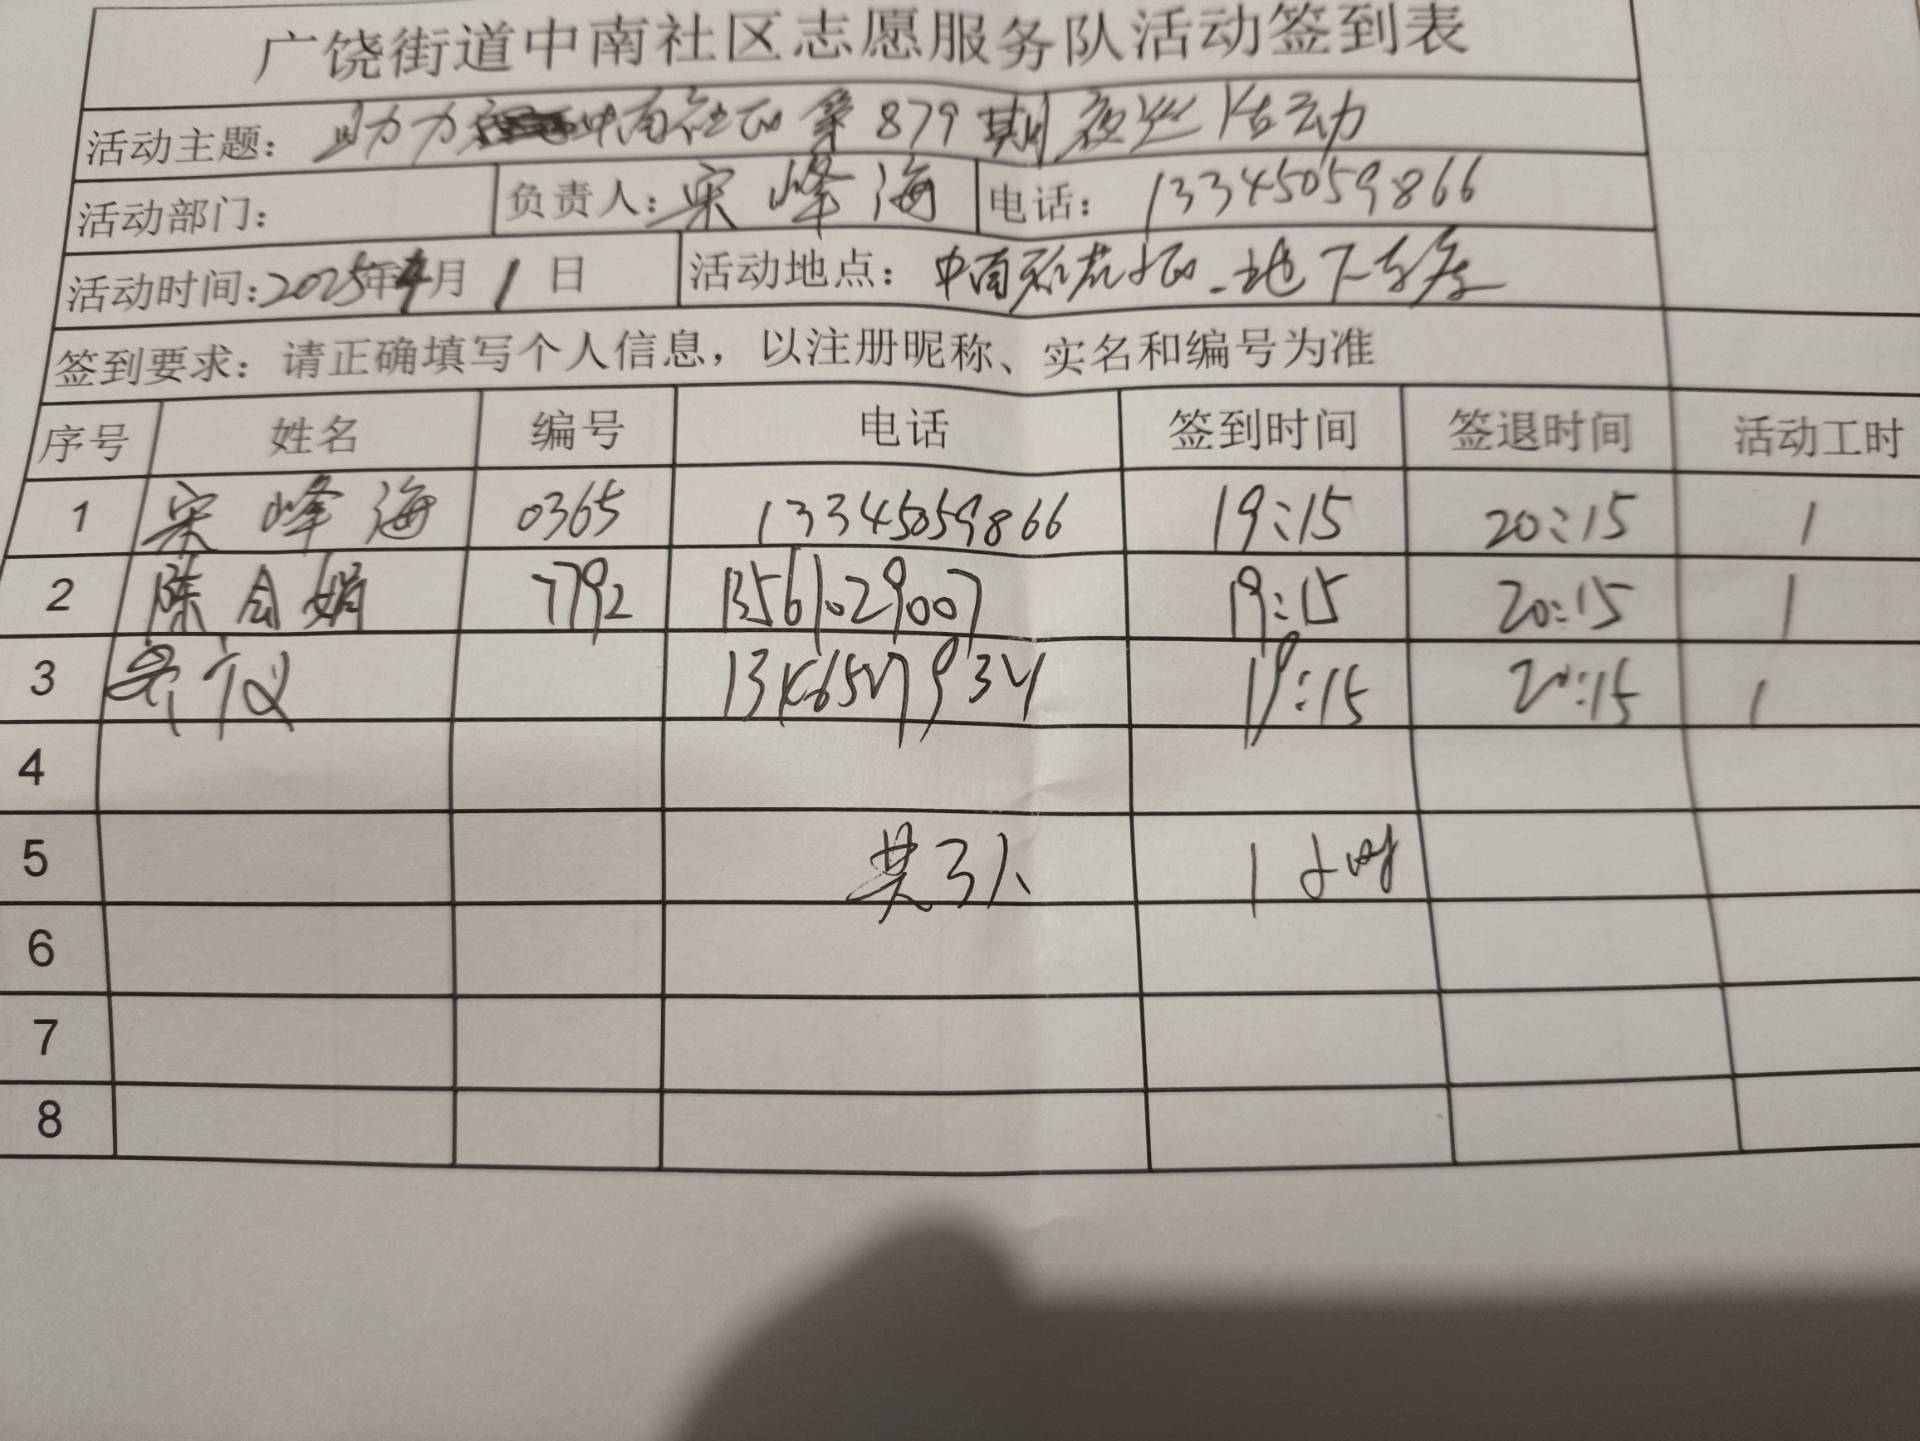 广饶街道中南社区志愿服务队活动签到表
活动主题：助力中南社区第879期夜巡活动
活动部门： 负责人：宋峰海 电话：13345059866
活动时间：2025年4月1日 活动地点：中南 地下车库
签到要求：请正确填写个人信息，以注册昵称、实名和编号为准
序号 姓名 编号 电话 签到时间 签退时间 活动工时
1 宋峰海 0365 13345059866 19:15 20:15 1
2 陈会娟 7792 13561029007 19:15 20:15 1
3 19:15 20:15 1
4
5 共3人 1小时
6
7
8